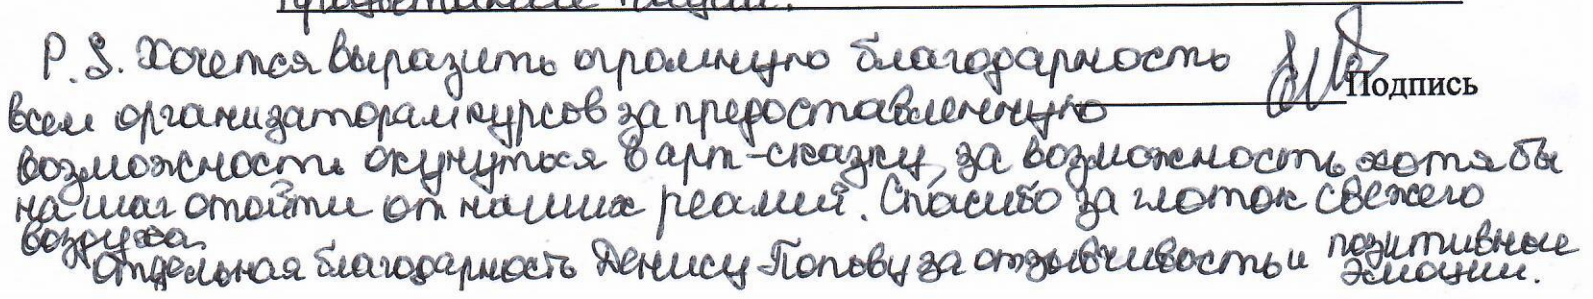 P.S. Хочется выразить огромную благодарность
Подпись
всем организаторам курсов за предоставленную
возможность окунуться в арт-сказку, за возможность хотя бы
на шаг отойти от наших реалий. Спасибо за глоток свежего
воздуха.
Отдельная благодарность Денису Попову за отзывчивость и позитивные
эмоции.